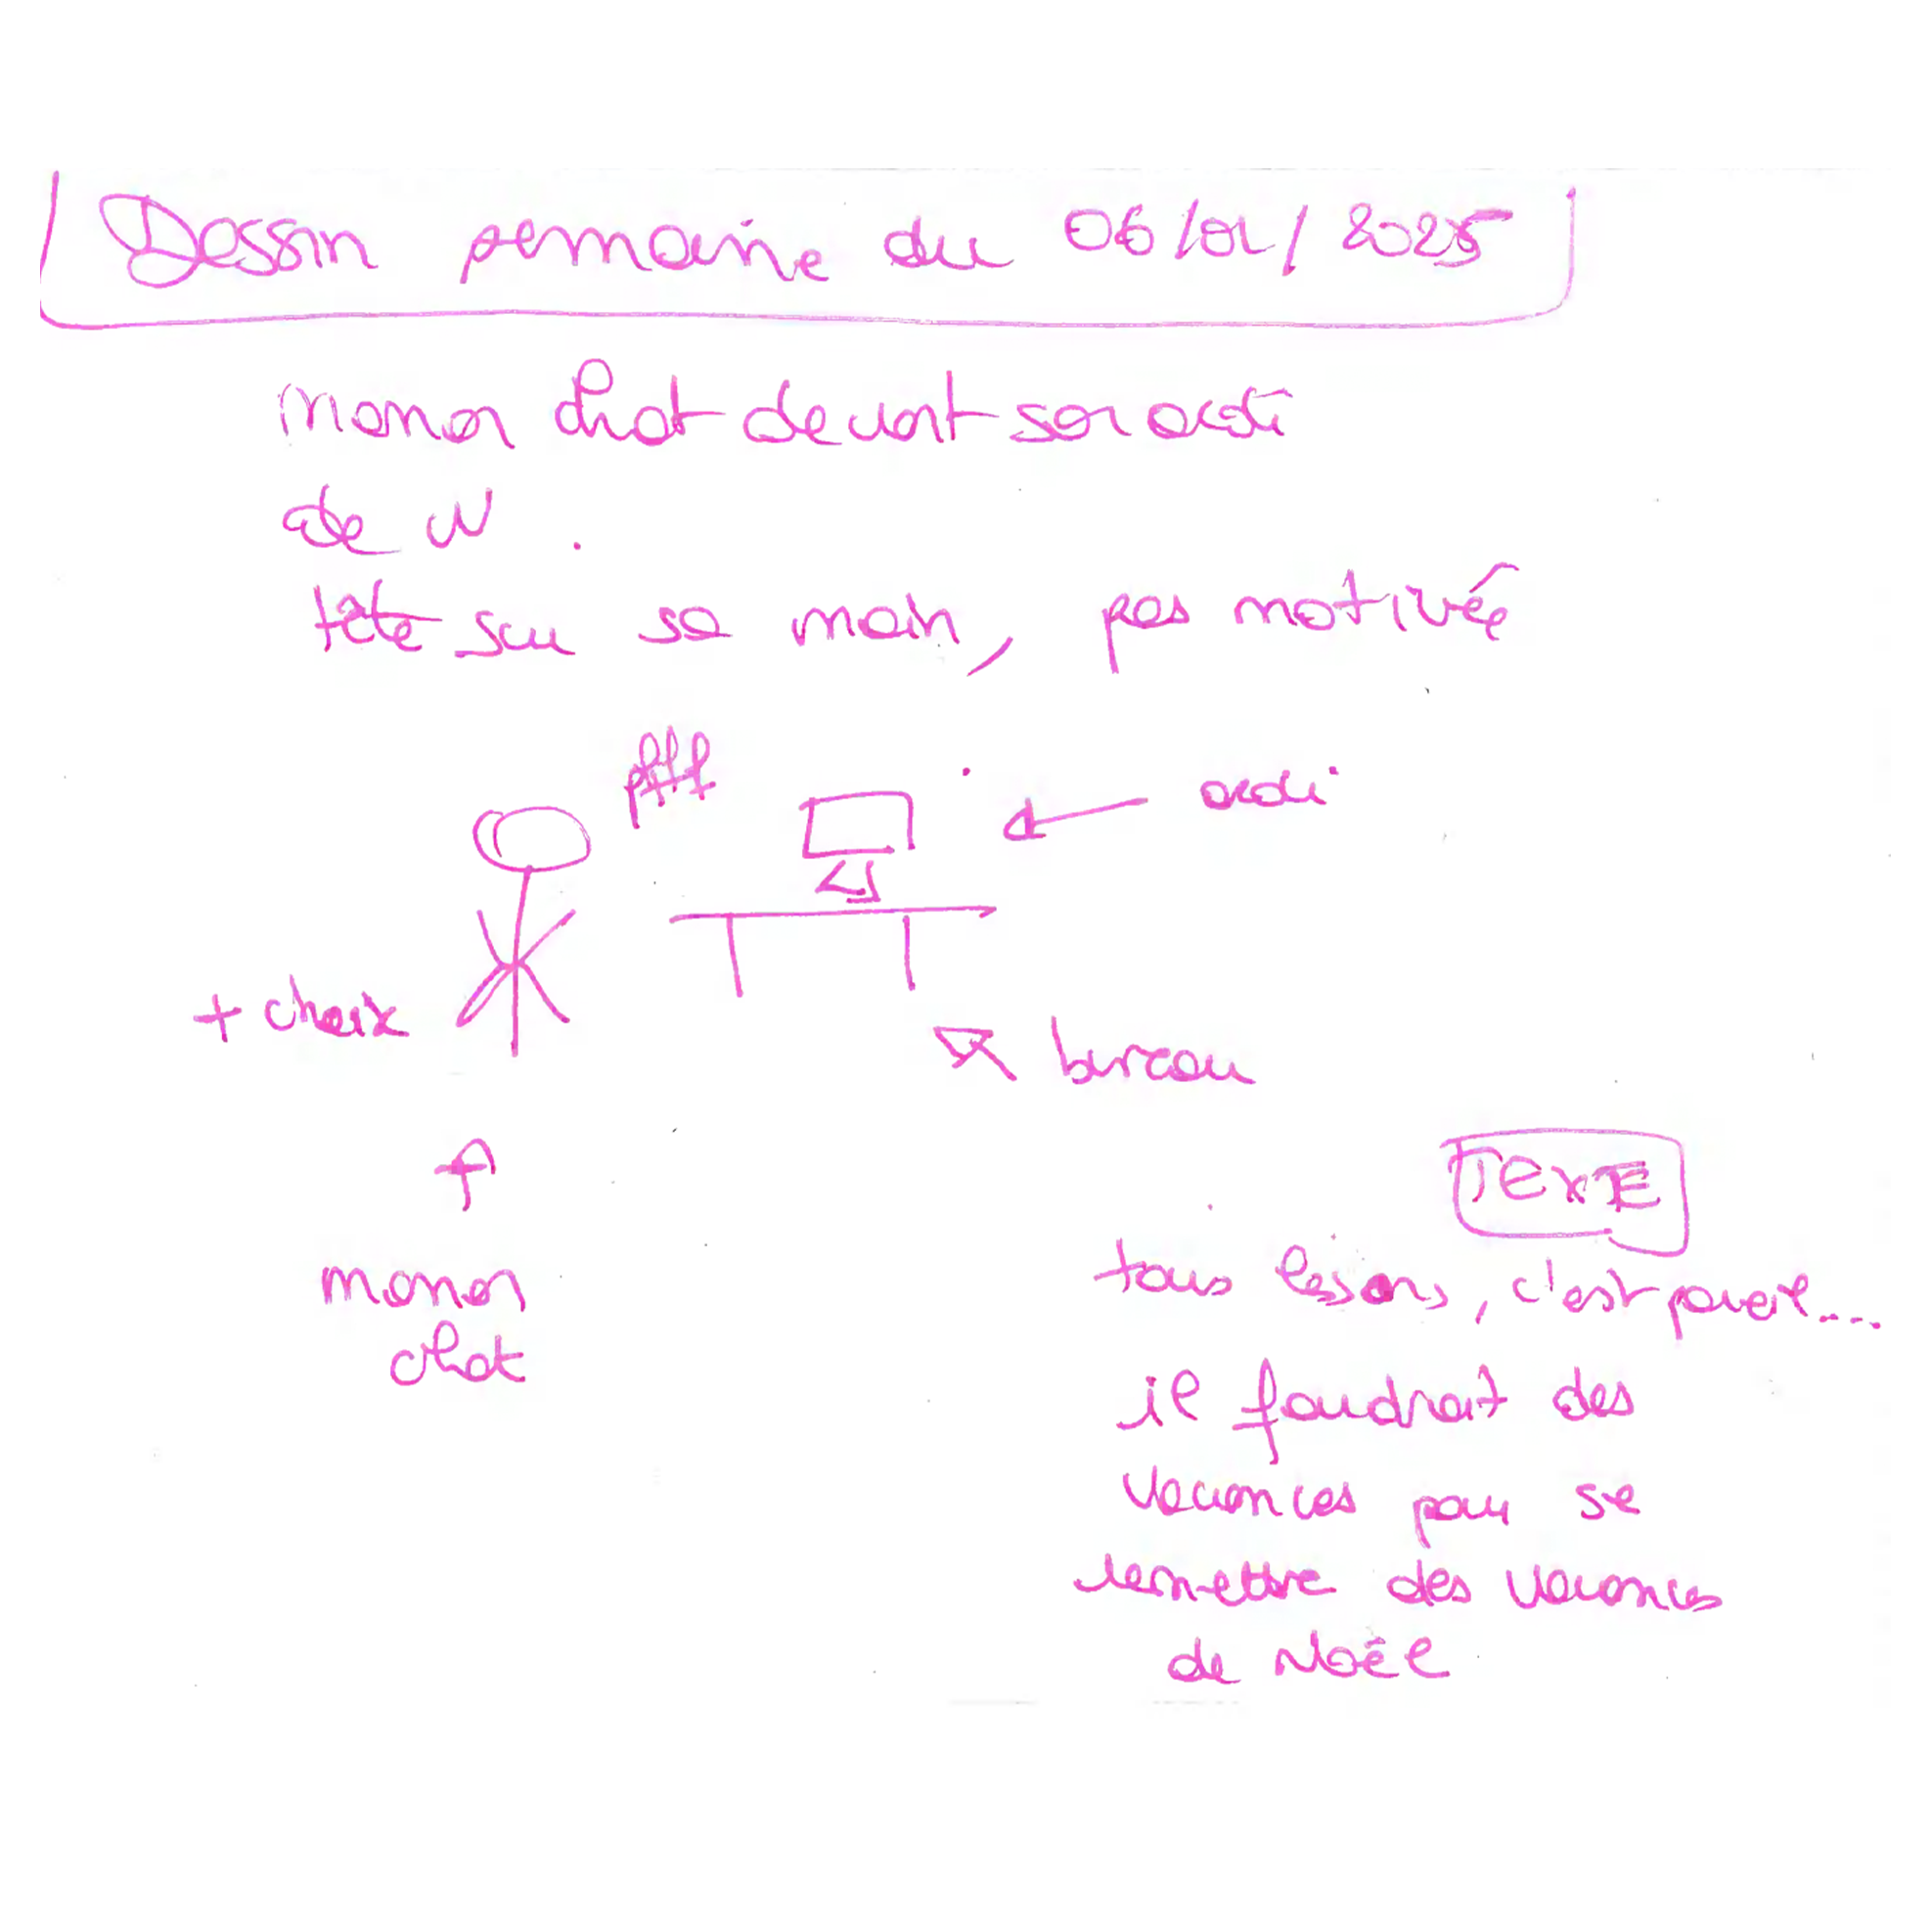 Dessin semaine du 06/01/2025
Manon chat devant son ordi
de N.
tête sur sa main, pas motivée
pffff
ordi
+ chaix
bureau
manon
chat
TEXTE
tous les ans, c'est pareil....
il faudrait des
vacances pour se
remettre des vacances
de Noël